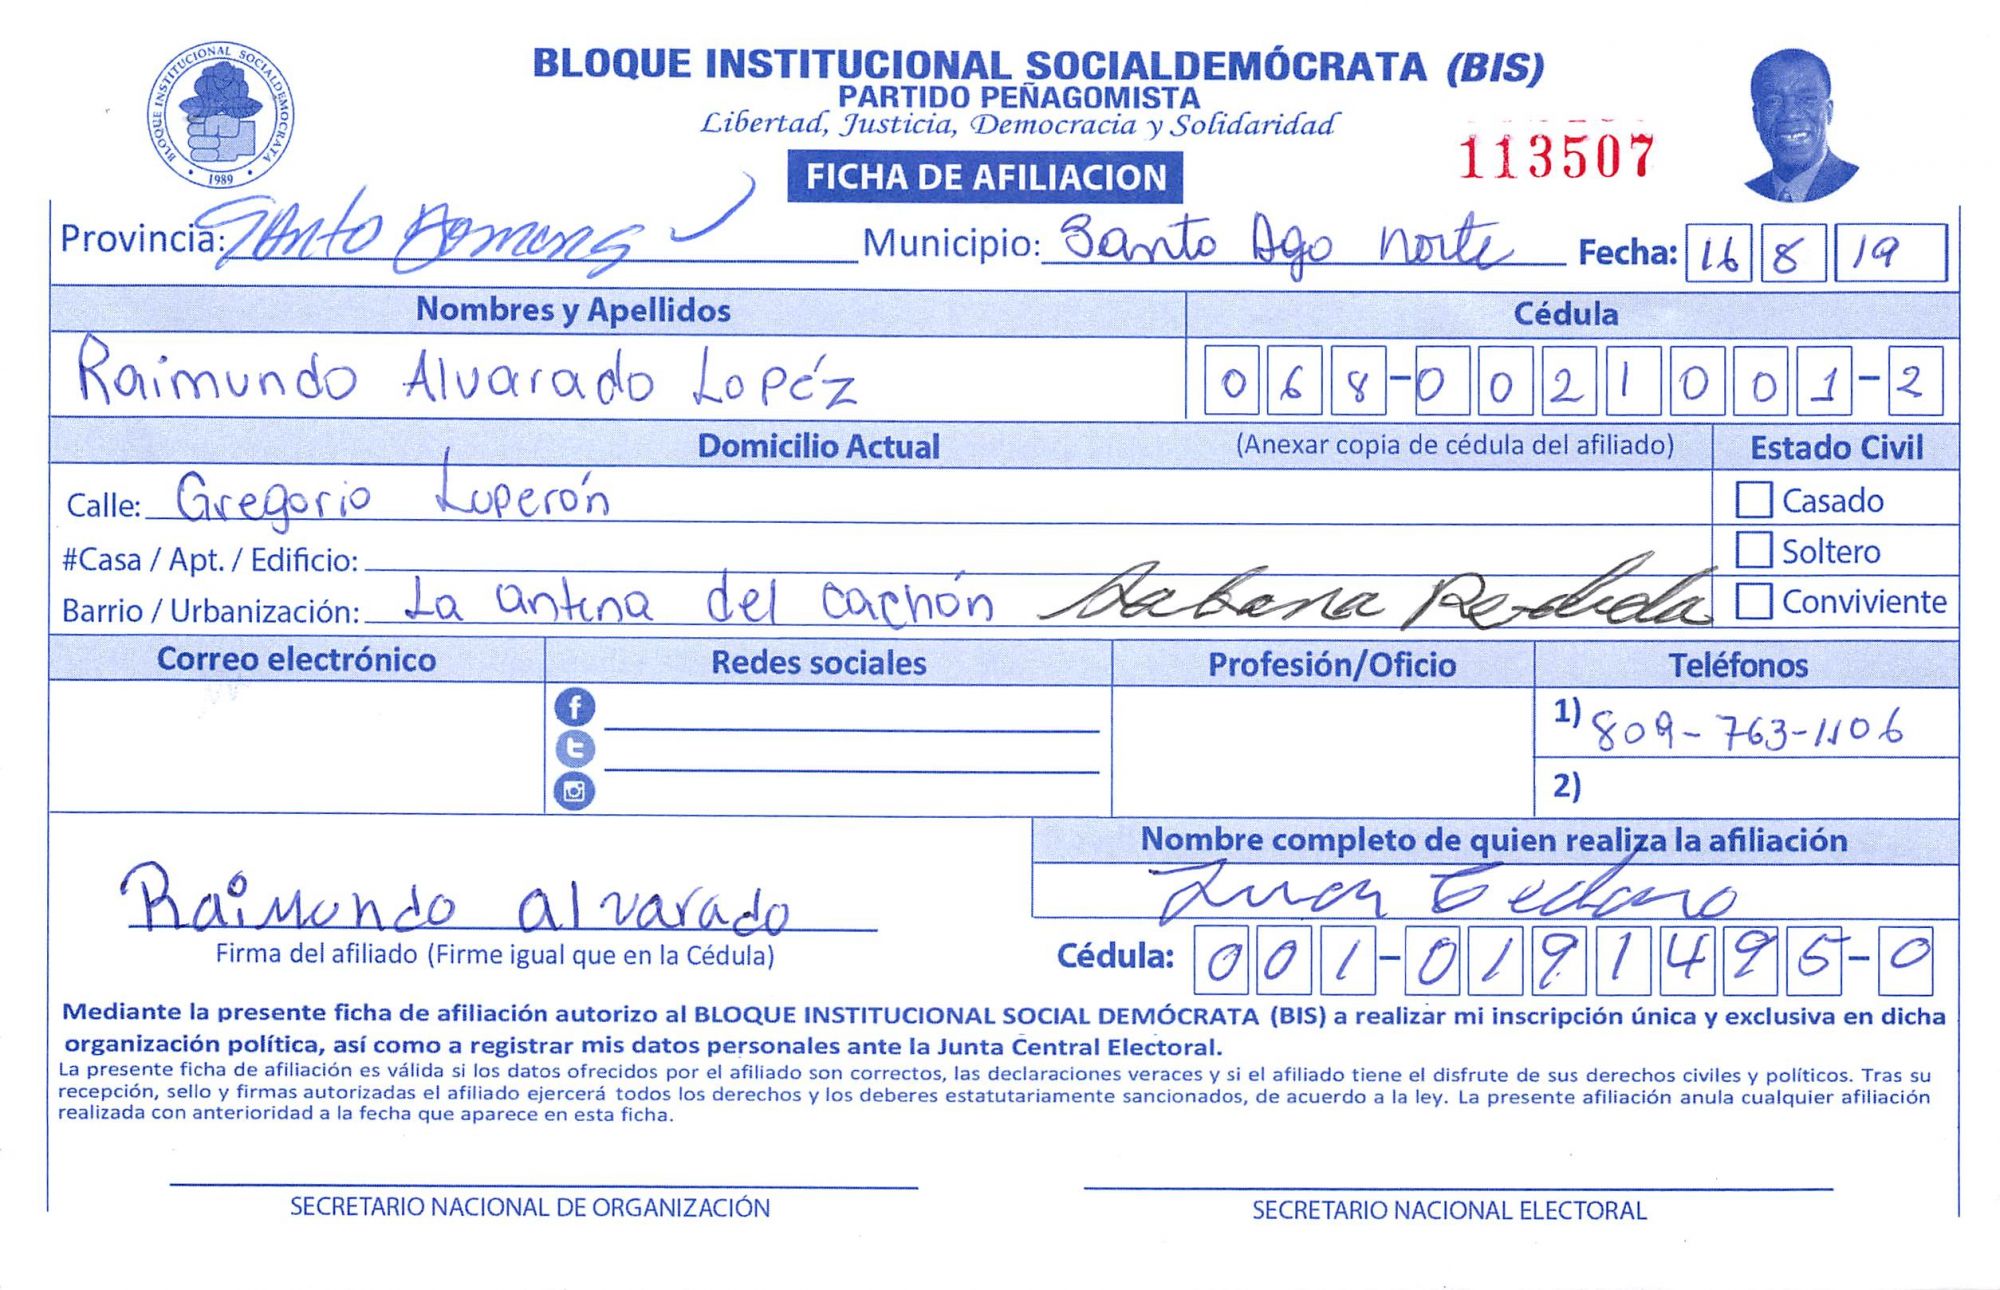 BLOQUE INSTITUCIONAL SOCIALDEMÓCRATA (BIS)
PARTIDO PEÑAGOMISTA
Libertad, Justicia, Democracia y Solidaridad
BLOQUE INSTITUCIONAL SOCIALDEMOCRATA
• 1989 •
FICHA DE AFILIACION
113507
Provincia: Santo Domingo Municipio: Santo Dgo norte Fecha: 16 8 19
Nombres y Apellidos Cédula
Raimundo Alvarado Lopéz 068-0021001-2
Domicilio Actual (Anexar copia de cédula del afiliado) Estado Civil
Calle: Gregorio Luperón Casado
#Casa / Apt. / Edificio: Soltero
Barrio / Urbanización: La antena del cachón Sabana Perdida Conviviente
Correo electrónico Redes sociales Profesión/Oficio Teléfonos
1) 809-763-1106
2)
Nombre completo de quien realiza la afiliación
Juan Cedano
Raimundo alvarado
Firma del afiliado (Firme igual que en la Cédula) Cédula: 001-0191495-0
Mediante la presente ficha de afiliación autorizo al BLOQUE INSTITUCIONAL SOCIAL DEMÓCRATA (BIS) a realizar mi inscripción única y exclusiva en dicha
organización política, así como a registrar mis datos personales ante la Junta Central Electoral.
La presente ficha de afiliación es válida si los datos ofrecidos por el afiliado son correctos, las declaraciones veraces y si el afiliado tiene el disfrute de sus derechos civiles y políticos. Tras su
recepción, sello y firmas autorizadas el afiliado ejercerá todos los derechos y los deberes estatutariamente sancionados, de acuerdo a la ley. La presente afiliación anula cualquier afiliación
realizada con anterioridad a la fecha que aparece en esta ficha.
SECRETARIO NACIONAL DE ORGANIZACIÓN SECRETARIO NACIONAL ELECTORAL